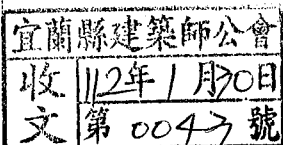 宜蘭縣建築師公會
收文 112年1月30日
第 0043 號